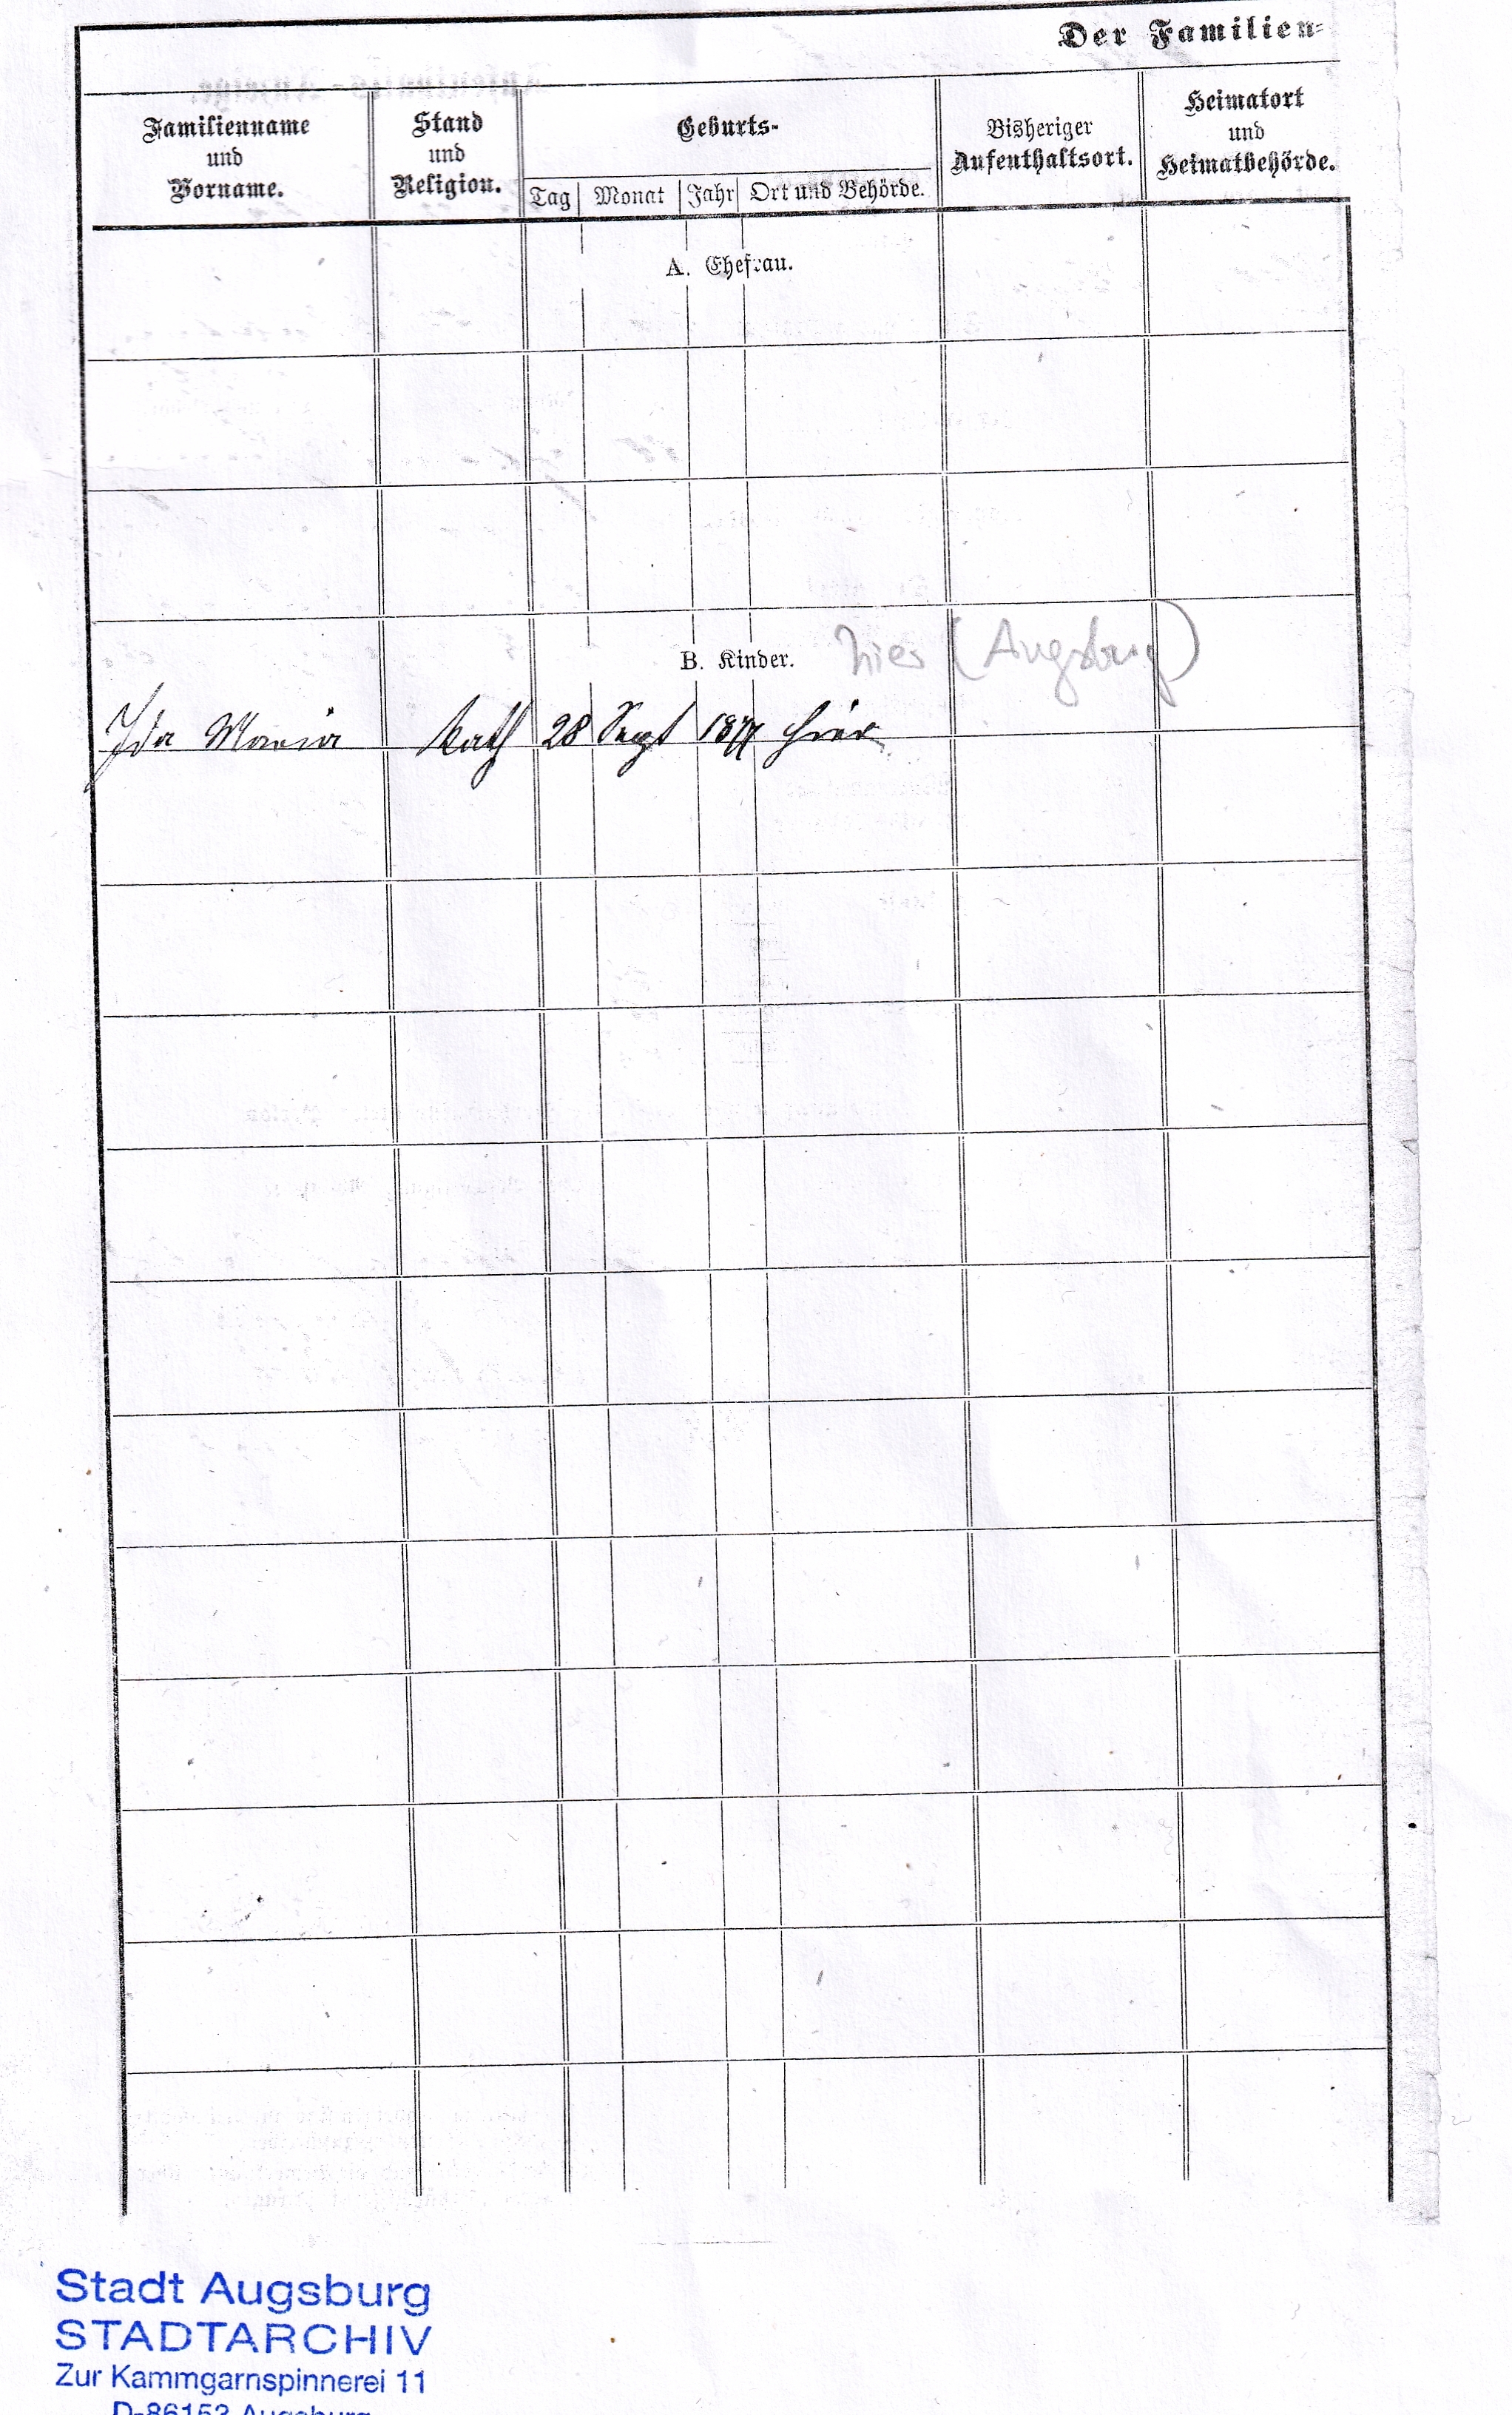 Der Familien-
Familienname
und
Vorname.
Stand
und
Religion.
Geburts-
Tag Monat Jahr Ort und Behörde.
Bisheriger
Aufenthaltsort.
Heimatort
und
Heimatbehörde.
A. Ehefrau.
B. Kinder. hier (Augsburg)
Ida Maria Kath 28 Sept hier
Stadt Augsburg
STADTARCHIV
Zur Kammgarnspinnerei 11
D-86153 Augsburg